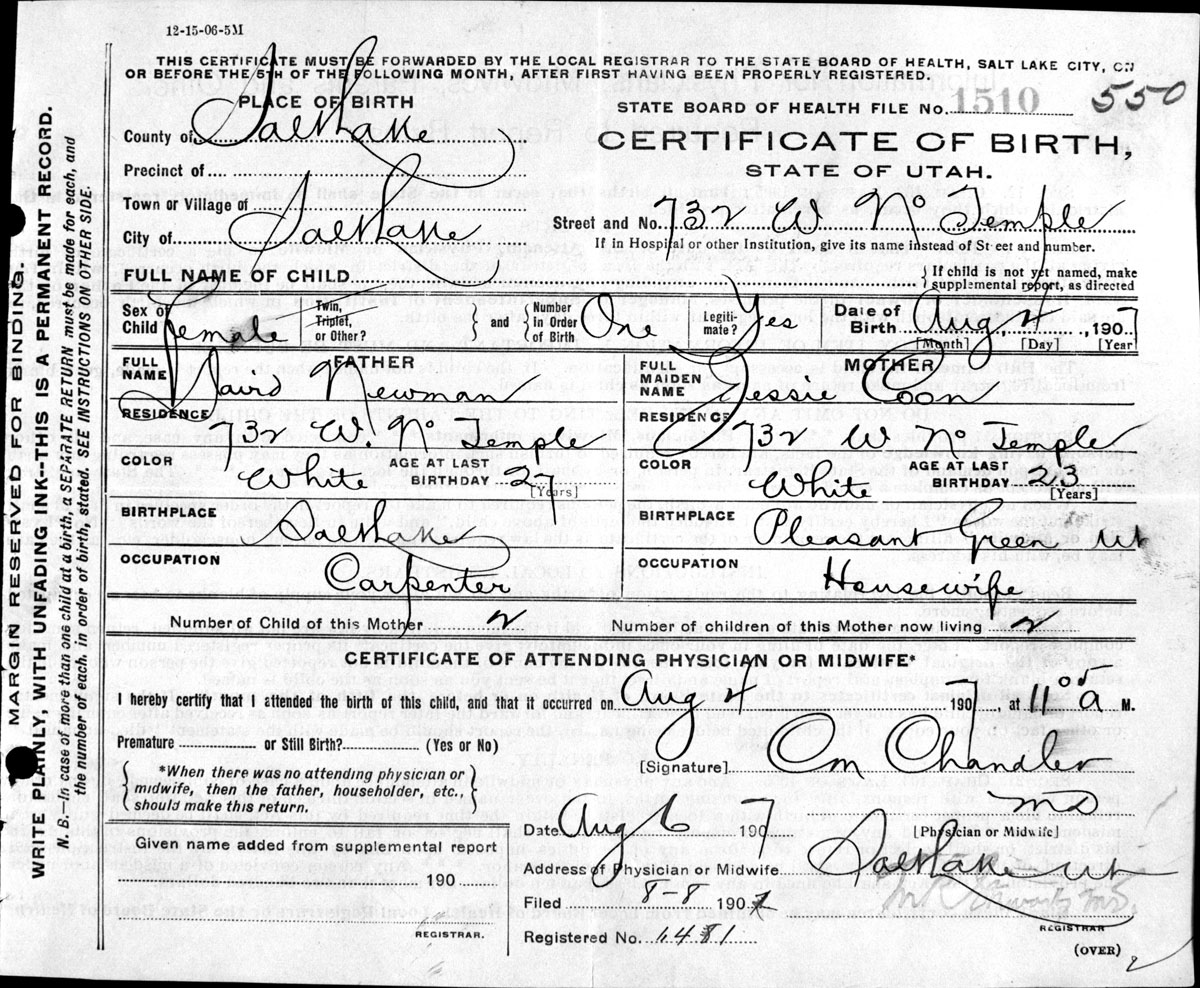 12-15-06-5M
THIS CERTIFICATE MUST BE FORWARDED BY THE LOCAL REGISTRAR TO THE STATE BOARD OF HEALTH, SALT LAKE CITY, ON
OR BEFORE THE 5TH OF THE FOLLOWING MONTH, AFTER FIRST HAVING BEEN PROPERLY REGISTERED.
PLACE OF BIRTH
STATE BOARD OF HEALTH FILE No. 1510 550
County of Salt Lake
CERTIFICATE OF BIRTH,
STATE OF UTAH.
Precinct of
Town or Village of
Street and No. 732 W No Temple
City of Salt Lake
If in Hospital or other Institution, give its name instead of Street and number.
FULL NAME OF CHILD
If child is not yet named, make
supplemental report, as directed
Sex of Child Female
Twin, Triplet, or Other?
and
Number in Order of Birth One
Legitimate? Yes
Date of Birth Aug. 4, 1907
[Month] [Day] [Year]
FATHER
FULL NAME David Newman
RESIDENCE
732 W. No Temple
COLOR White
AGE AT LAST BIRTHDAY 27
[Years]
BIRTHPLACE
Salt Lake
OCCUPATION
Carpenter
MOTHER
FULL MAIDEN NAME Jessie Coon
RESIDENCE
732 W No Temple
COLOR White
AGE AT LAST BIRTHDAY 23
[Years]
BIRTHPLACE
Pleasant Green Ut
OCCUPATION
Housewife
Number of Child of this Mother 2
Number of children of this Mother now living 2
CERTIFICATE OF ATTENDING PHYSICIAN OR MIDWIFE*
I hereby certify that I attended the birth of this child, and that it occurred on Aug 4 1907, at 11 00 a M.
Premature or Still Birth? (Yes or No)
*When there was no attending physician or
midwife, then the father, householder, etc.,
should make this return.
[Signature] Chandler
MD
[Physician or Midwife]
Date Aug 6 1907
Given name added from supplemental report
190
REGISTRAR.
Address of Physician or Midwife Salt Lake Ut
Filed 8-8 1907
REGISTRAR
Registered No. 1481
(OVER)
MARGIN RESERVED FOR BINDING.
WRITE PLAINLY, WITH UNFADING INK--THIS IS A PERMANENT RECORD.
N. B.--In case of more than one child at a birth, a SEPARATE RETURN must be made for each, and
the number of each, in order of birth, stated. SEE INSTRUCTIONS ON OTHER SIDE.